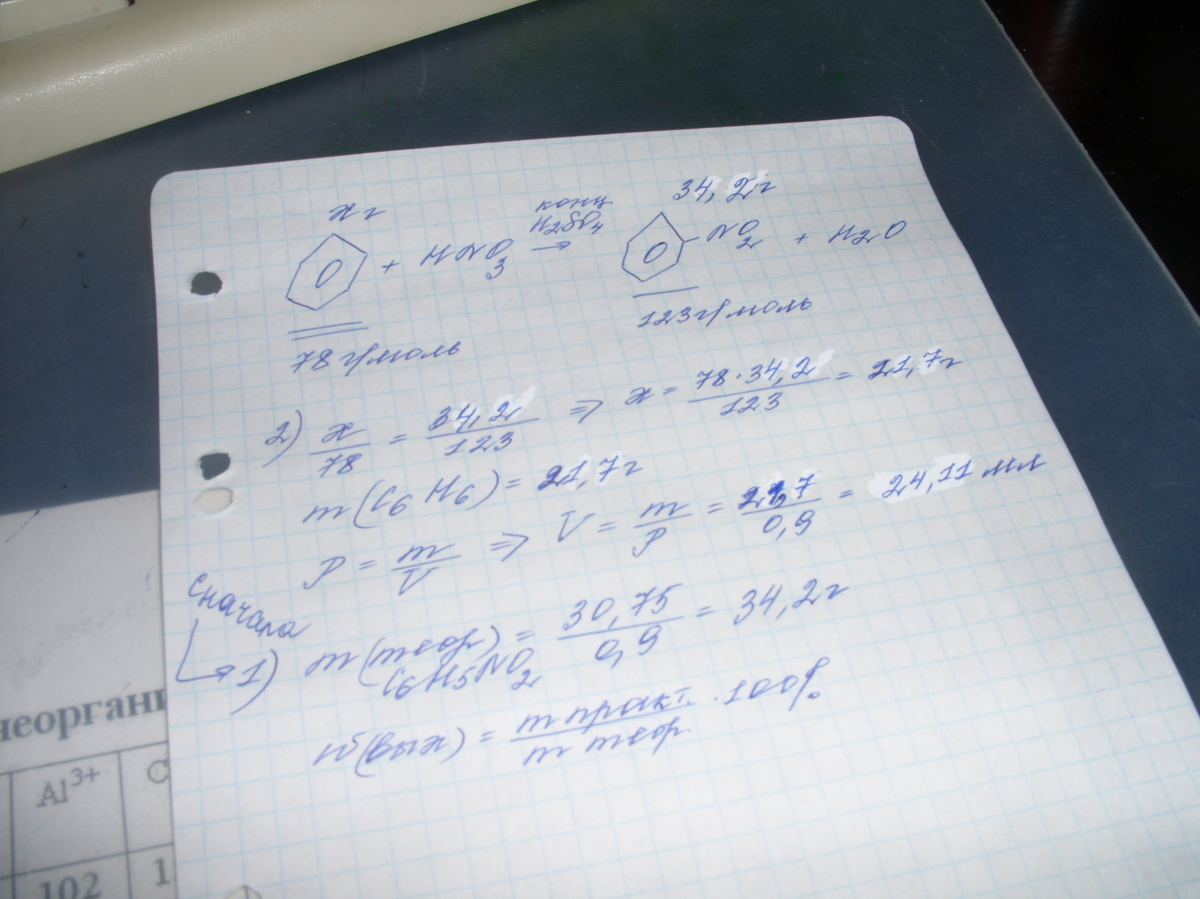 x г
34,2 г
конц
H₂SO₄
+ HNO₃ → NO₂ + H₂O
78 г/моль
123 г/моль
2) x/78 = 34,2/123 ⇒ x = 78·34,2/123 = 21,7 г
m(C₆H₆) = 21,7 г
ρ = m/V ⇒ V = m/ρ = 21,7/0,9 = 24,11 мл
Сначала
1) m(теор) = 30,75/0,9 = 34,2 г
C₆H₅NO₂
ω(вых) = m практ./m теор. · 100%
неорган
Al³⁺
C
102
1